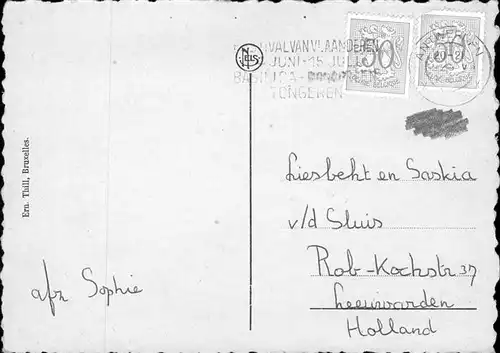 FESTIVAL VAN VLAANDEREN
JUNI-15 JULI
BASILICA-CONCERTEN
TONGEREN
50
50
ANTWERPEN
NELS
Ern. Thill, Bruxelles.
Liesbeht en Saskia
v/d Sluis
Rob-Kochstr 37
Leeuwarden
Holland
afz Sophie